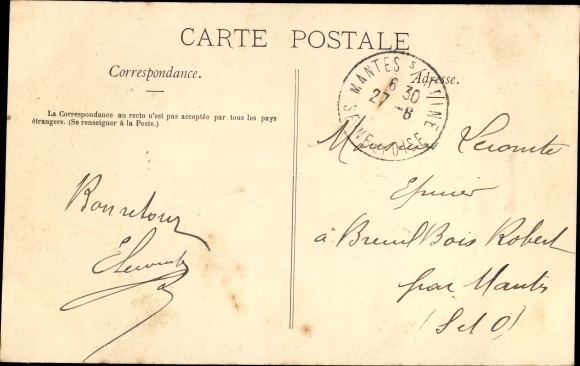 CARTE POSTALE
Correspondance.
Adresse.
La Correspondance au recto n'est pas acceptée par tous les pays
étrangers. (Se renseigner à la Poste.)
MANTES S SEINE
6 30
27 -8
SEINE ET OISE
Bon retour
ELecomte
Monsieur Lecomte
Epicier
à Breuil Bois Robert
par Mantes
(S et O)